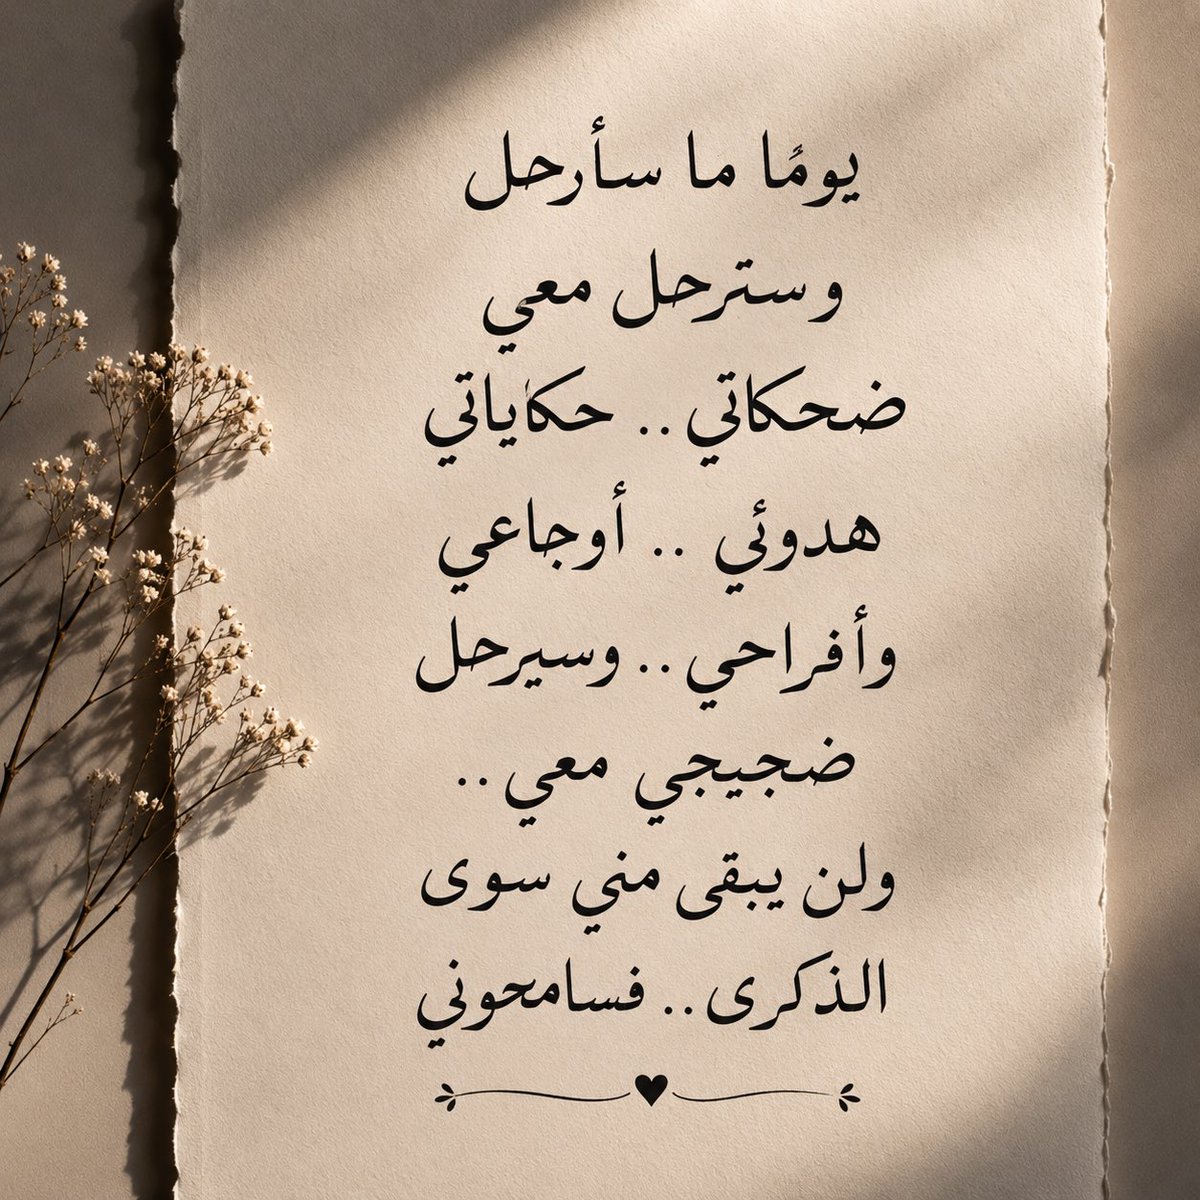 يومًا ما سأرحل
وسترحل معي
ضحكاتي .. حكاياتي
هدوئي .. أوجاعي
وأفراحي .. وسيرحل
ضجيجي معي ..
ولن يبقى مني سوى
الذكرى .. فسامحوني